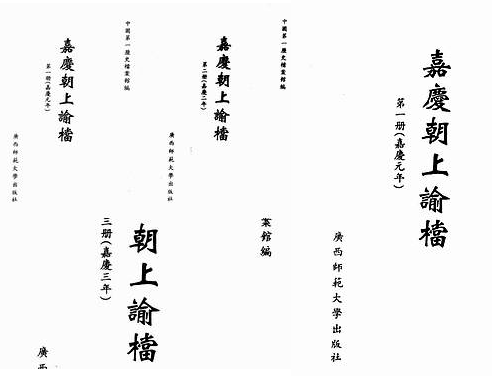 中國第一歷史檔案館編
嘉慶朝上諭檔
第一册(嘉慶元年)
廣西師范大學出版社
中國第一歷史檔案館編
嘉慶朝上諭檔
第二册(嘉慶二年)
廣西師范大學出版社
案館編
朝上諭檔
三册(嘉慶三年)
廣西
嘉慶朝上諭檔
第一册(嘉慶元年)
廣西師范大學出版社